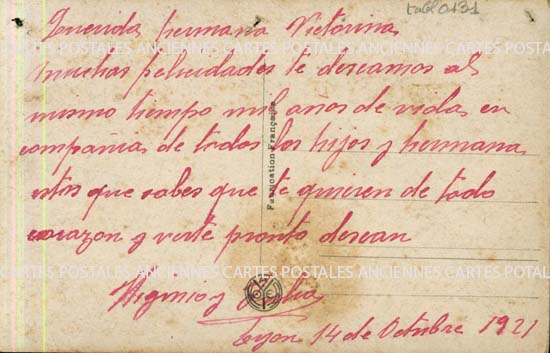 tagl0131
Querida hermana Victorina
muchas felicidades te deseamos al
CARTES POSTALES ANCIENNES CARTES POSTALES ANCIENNES CARTES POSTALES
mismo tiempo mil años de vida en
compañia de todos los hijos y hermana
estos que sabes que te quieren de todo
corazon y verte pronto desean
CARTES POSTALES ANCIENNES CARTES POSTALES ANCIENNES CARTES POSTALES
Higinio y Julia
Lyon 14 de Octubre 1921
Fabrication Française